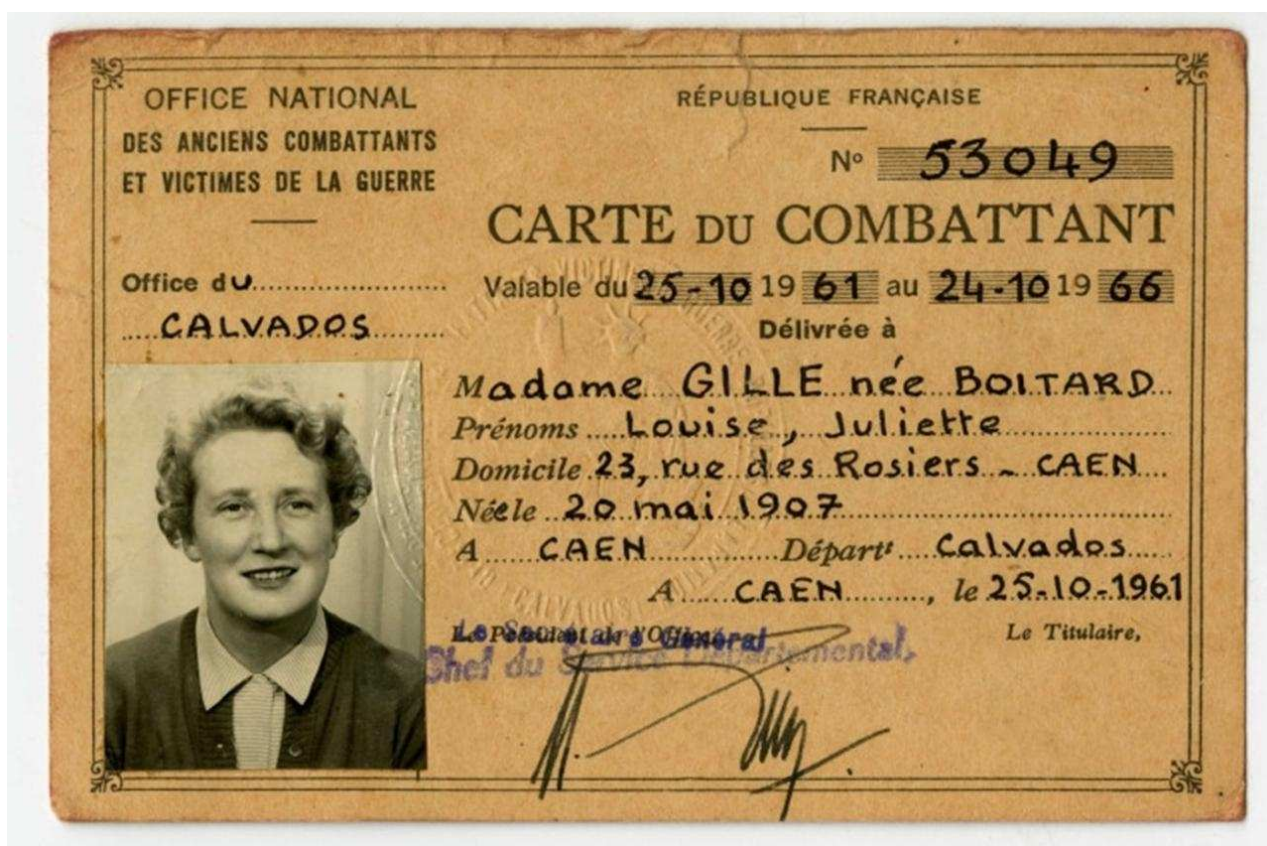 OFFICE NATIONAL
DES ANCIENS COMBATTANTS
ET VICTIMES DE LA GUERRE
Office du
CALVADOS
RÉPUBLIQUE FRANÇAISE
No 53049
CARTE DU COMBATTANT
Valable du 25-10 1961 au 24-10 1966
Délivrée à
Madame GILLE née BOITARD
Prénoms Louise, Juliette
Domicile 23, rue des Rosiers - CAEN
Née le 20 mai 1907
A CAEN Départt Calvados
A CAEN, le 25-10-1961
Le Président de l'Office
Le Secrétaire Général
Chef du Service Départemental,
Le Titulaire,